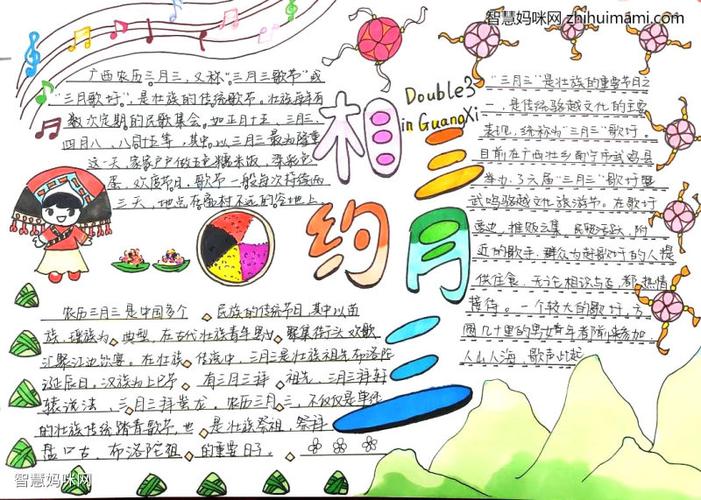 智慧妈咪网 zhihuimami.com
相约
三月三
Double3
in GuangXi
广西农历三月三，又称"三月三歌节"或
"三月歌圩"，是壮族的传统歌节。壮族每年有
数次定期的民歌集会，如正月十五、三月三、
四月八、八月十五等，其中以三月三最为隆重
这一天，家家户户做五色糯米饭，染彩色
蛋，欢度节日，歌节一般每次持续两
三天，地点在离村不远的空地上
"三月三"是壮族的重要节日之
一，是传统骆越文化的主要
表现，统称为"三月三"歌圩，
目前在广西壮乡南宁市武鸣县
举办了六届"三月三"歌圩暨
武鸣骆越文化旅游节。在歌圩
旁边，摊贩云集，民贸活跃，附
近的歌手、群众为赶歌圩的人提
供住食，无论相识与否，都热情
接待。一个较大的歌圩，方
圆几十里的男女青年都前来参加
人山人海，歌声此起
农历三月三是中国多个 民族的传统节日，其中以苗
族、瑶族为 典型，在古代壮族青年男女 聚集街头欢歌
汇聚江边饮宴。在壮族 传说中，三月三是壮族祖先布洛陀
诞辰日，汉族为上巳节 有三月三拜 祖先，三月三拜轩
辕说法、三月三拜炎龙，农历三月三，不仅仅是单纯
的壮族传统踏青歌节，也 是壮族祭祖，祭拜
盘古、布洛陀祖 的重要日子。
智慧妈咪网